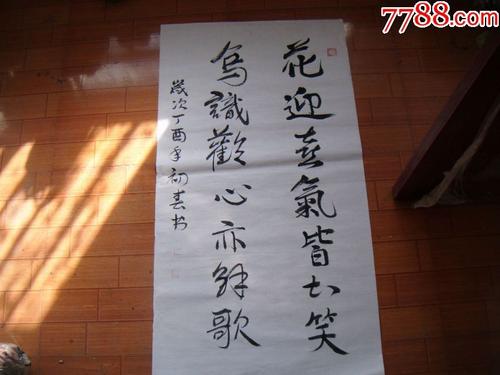 7788.com
花迎喜氣皆知笑
鳥識歡心亦解歌
歲次丁酉年初春书